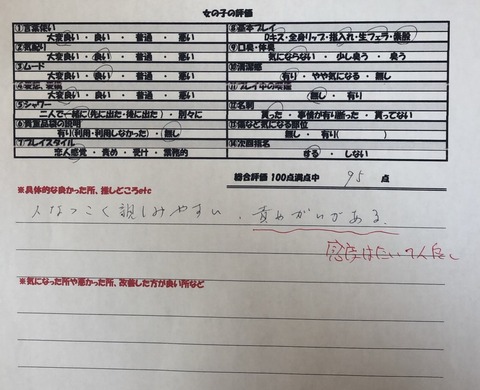 女の子の評価
①言葉使い
大変良い ・ 良い ・ 普通 ・ 悪い
②気配り
大変良い ・ 良い ・ 普通 ・ 悪い
③ムード
大変良い ・ 良い ・ 普通 ・ 悪い
大変良い ・ 良い ・ 普通 ・ 悪い
⑤シャワー
二人で一緒に(先に出た・後に出た) ・ 別々に
⑥貴重品袋の説明
有り(利用・利用しなかった) ・ 無し
⑦プレイスタイル
恋人感覚 ・ 責め ・ 受け ・ 業務的
⑧基本プレイ
Dキス・全身リップ・指入れ・生フェラ・素股
⑨口臭・体臭
気にならない ・ 少し臭う ・ 臭う
⑩清潔感
有り ・ やや気になる ・ 無し
無し ・ 有り
⑫名刺
貰った ・ 事情が有り断った ・ 貰ってない
⑬傷など気になる部位
無し ・ 有り( )
⑭次回指名
する ・ しない
総合評価 100点満点中 95 点
※具体的な良かった所、推しどころetc
人なつっこく親しみやすい、責めがいがある。
※気になった所や悪かった所、改善した方が良い所など